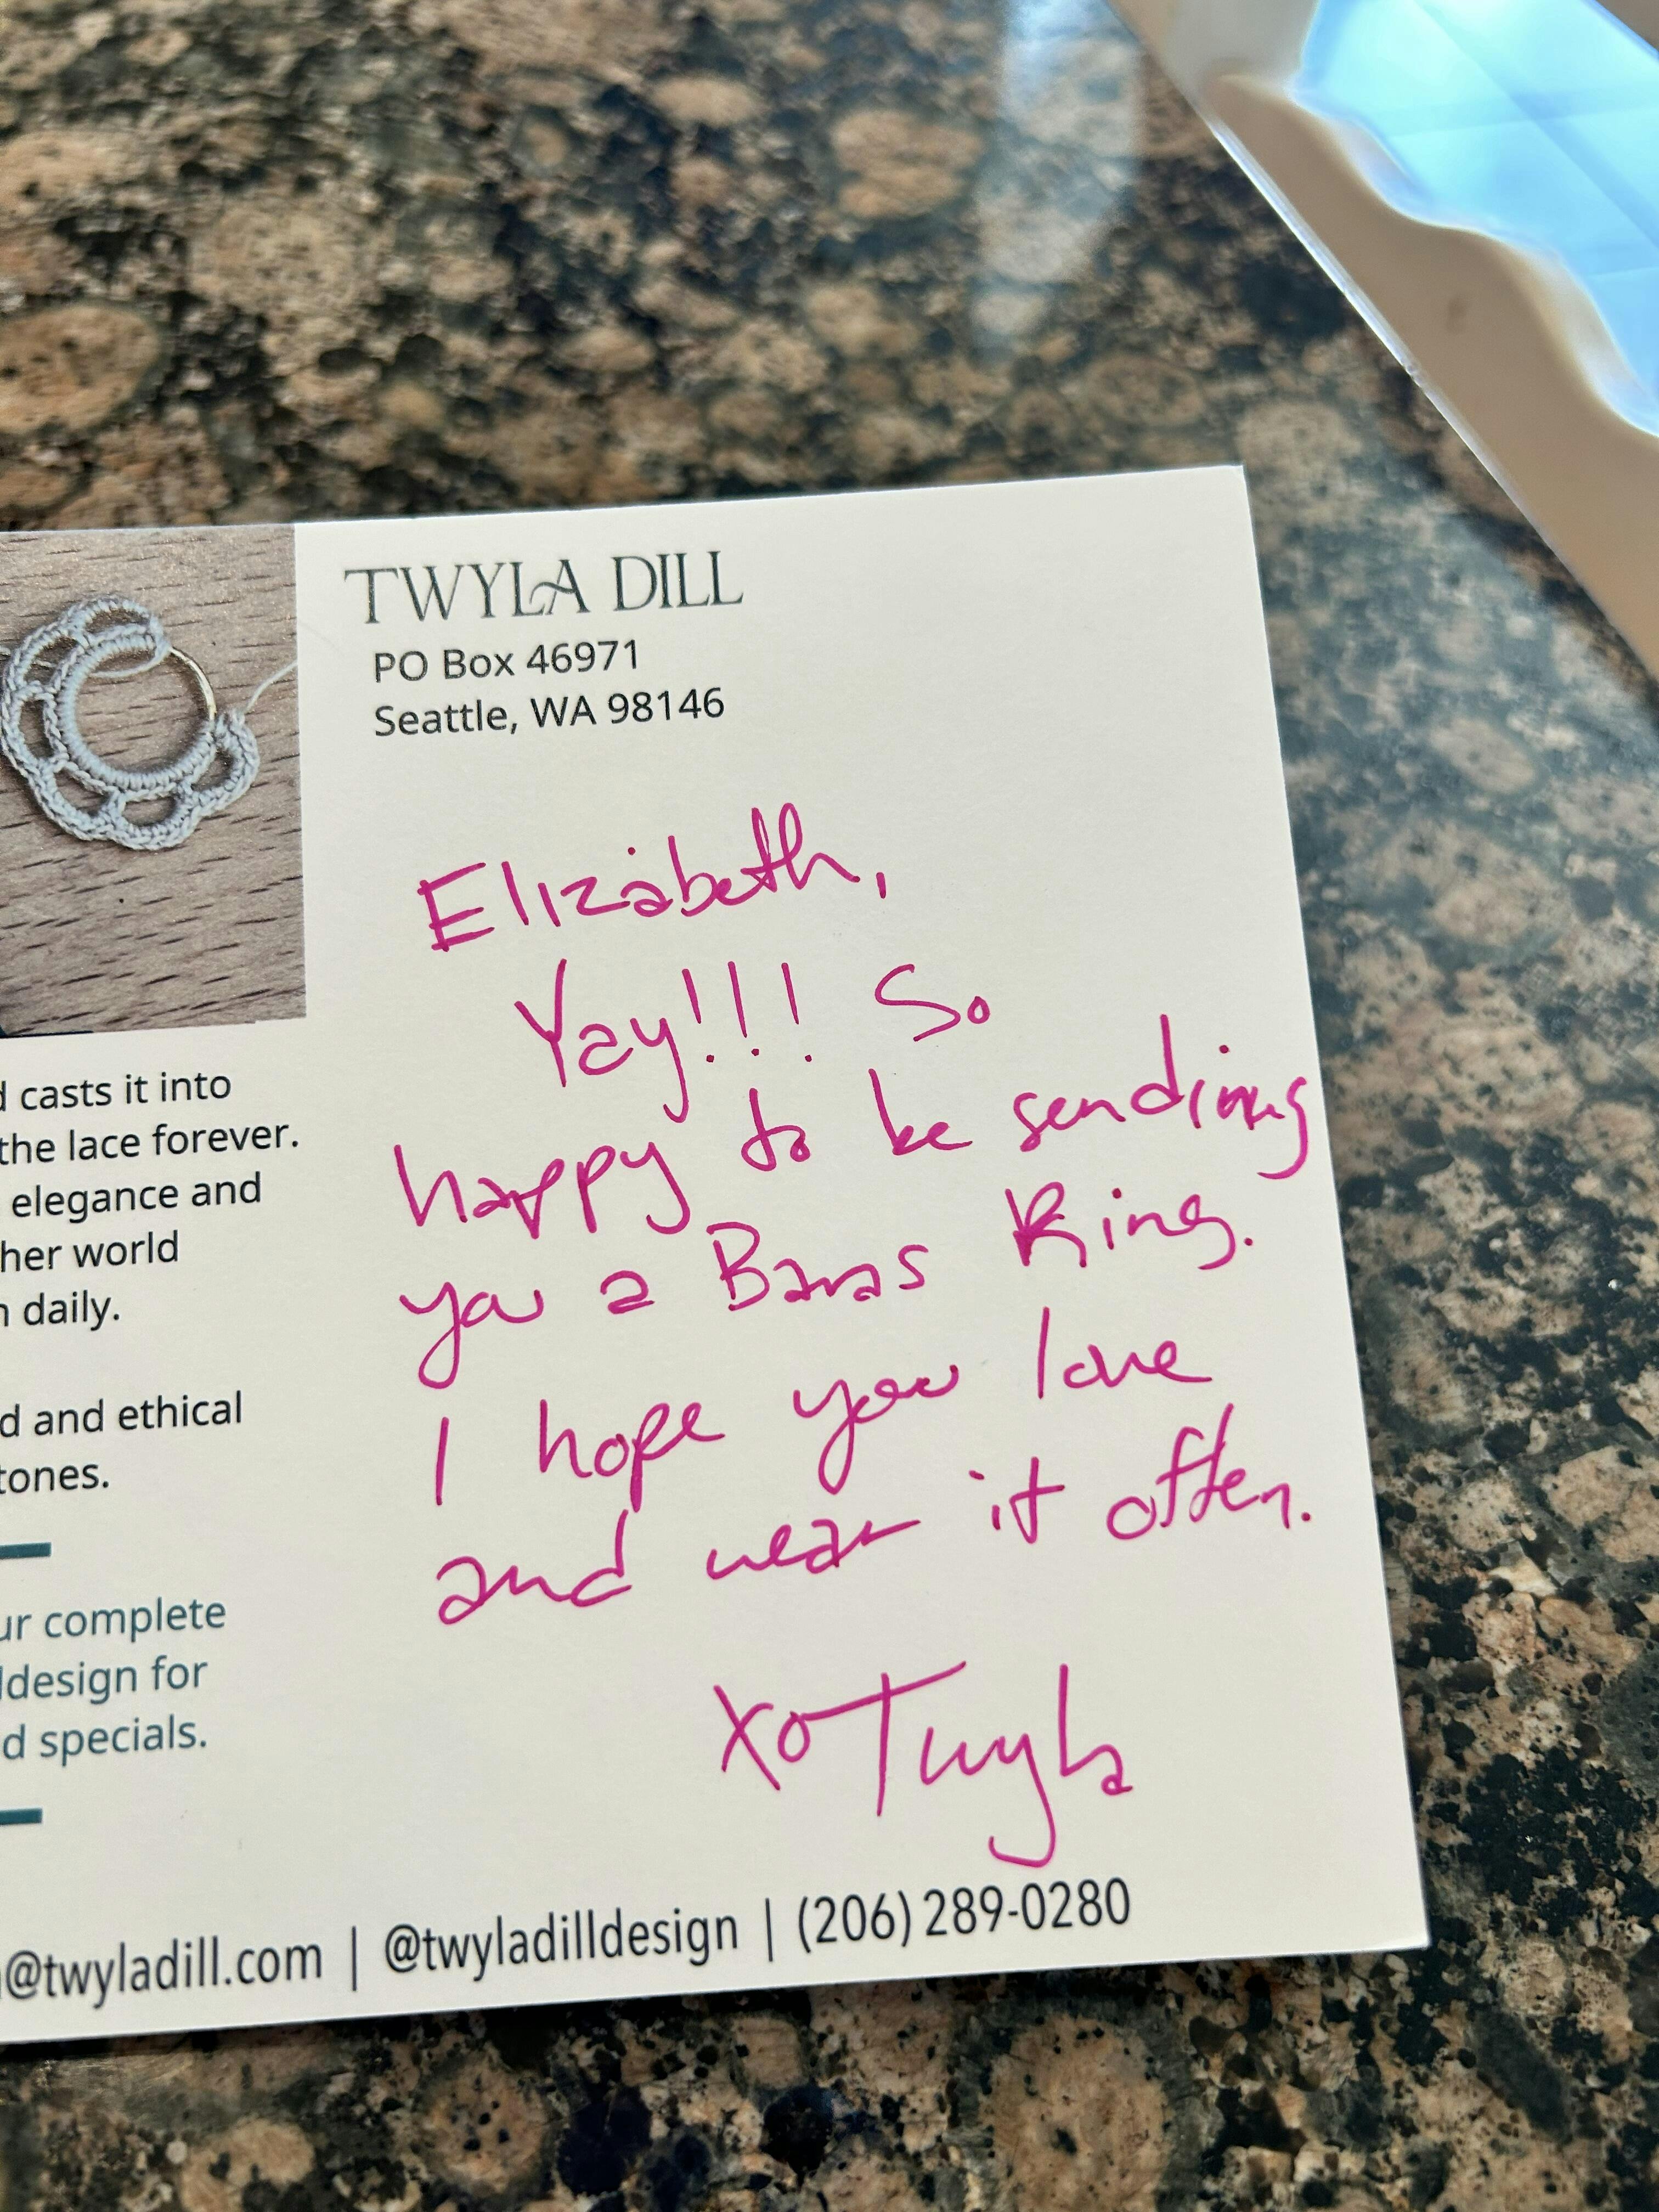 TWYLA DILL
PO Box 46971
Seattle, WA 98146
casts it into
the lace forever.
elegance and
her world
daily.
d and ethical
tones.
ur complete
ldesign for
d specials.
Elizabeth,
Yay!!! So
happy to be sending
you a Baras Ring.
I hope you love
and wear it often.
xo Twyla
@twyladill.com | @twyladilldesign | (206) 289-0280